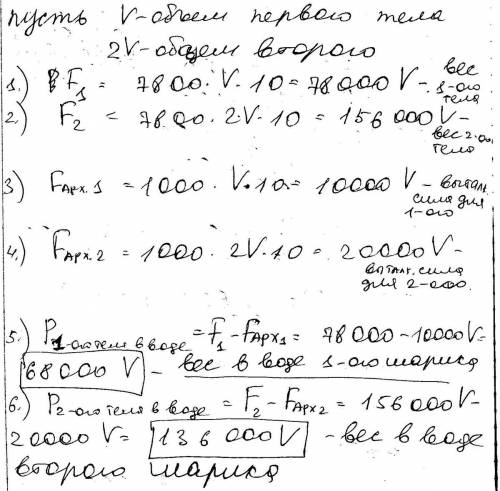 пусть V-объем первого тела
2V-объем второго
1.) F₁ = 7800·V·10=78000V- вес 1-ого тела
2.) F₂ = 7800·2V·10=156000V- вес 2-ого тела
3) Fарх.1 =1000·V·10=10000V-выталк. сила для 1-ого
4.) Fарх.2 =1000·2V·10=20000V-
вытал. сила для 2-ого.
5.) P1-ого тела в воде =F₁-Fарх1= 78000-10000V=
68000V - вес в воде 1-ого шарика
6.) P2-ого тела в воде = F₂-Fарх2=156000V-
20000V= 136000V -вес в воде
второго шарика